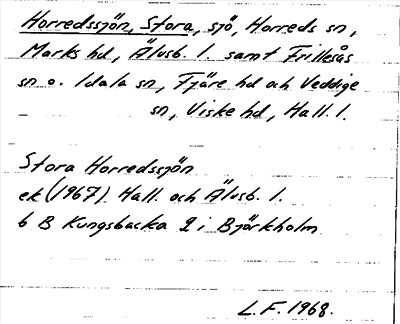 Horredssjön, Stora, sjö, Horreds sn,
Marks hd, Älvsb. l. samt Frillesås
sn o. Idala sn, Fjäre hd och Veddige
sn, Viske hd, Hall. l.
Stora Horredssjön
ek (1967) Hall. och Älvsb. l.
6 B Kungsbacka 2 i Björkholm
L.F. 1968.